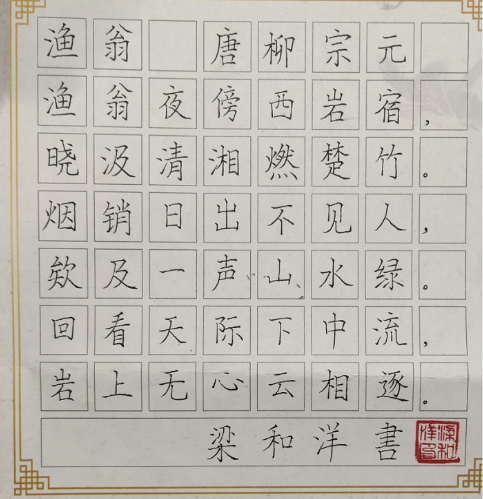 渔翁 唐柳宗元
渔翁夜傍西岩宿，
晓汲清湘燃楚竹。
烟销日出不见人，
欸及一声山水绿。
回看天际下中流，
岩上无心云相逐。
梁和洋書
梁和洋印